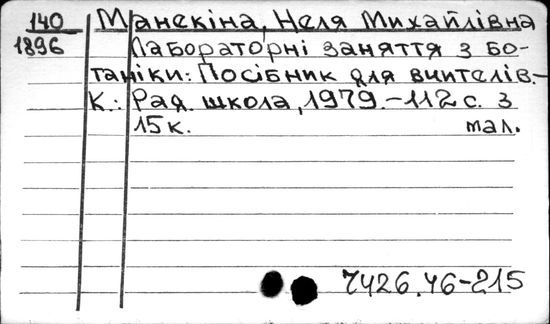 140 Манекіна, Неля Михайлівна
1896 Лабораторні заняття з бо-
таніки: Посібник для вчителів.-
К.: Рад. школа, 1979.-112 с. з
15к. мал.
7426.46-215